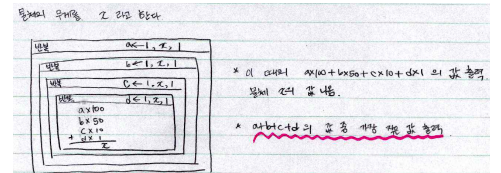 물체의 무게를 z 라고 한다
반복 a←1, z, 1
반복 b←1, z, 1
반복 c←1, z, 1
반복 d←1, z, 1
a×100
b×50
c×10
+ d×1
z
* 이 때의 a×100+b×50+c×10+d×1 의 값 출력.
물체 z의 값 나옴.
* a+b+c+d 의 값 중 가장 작은 값 출력.